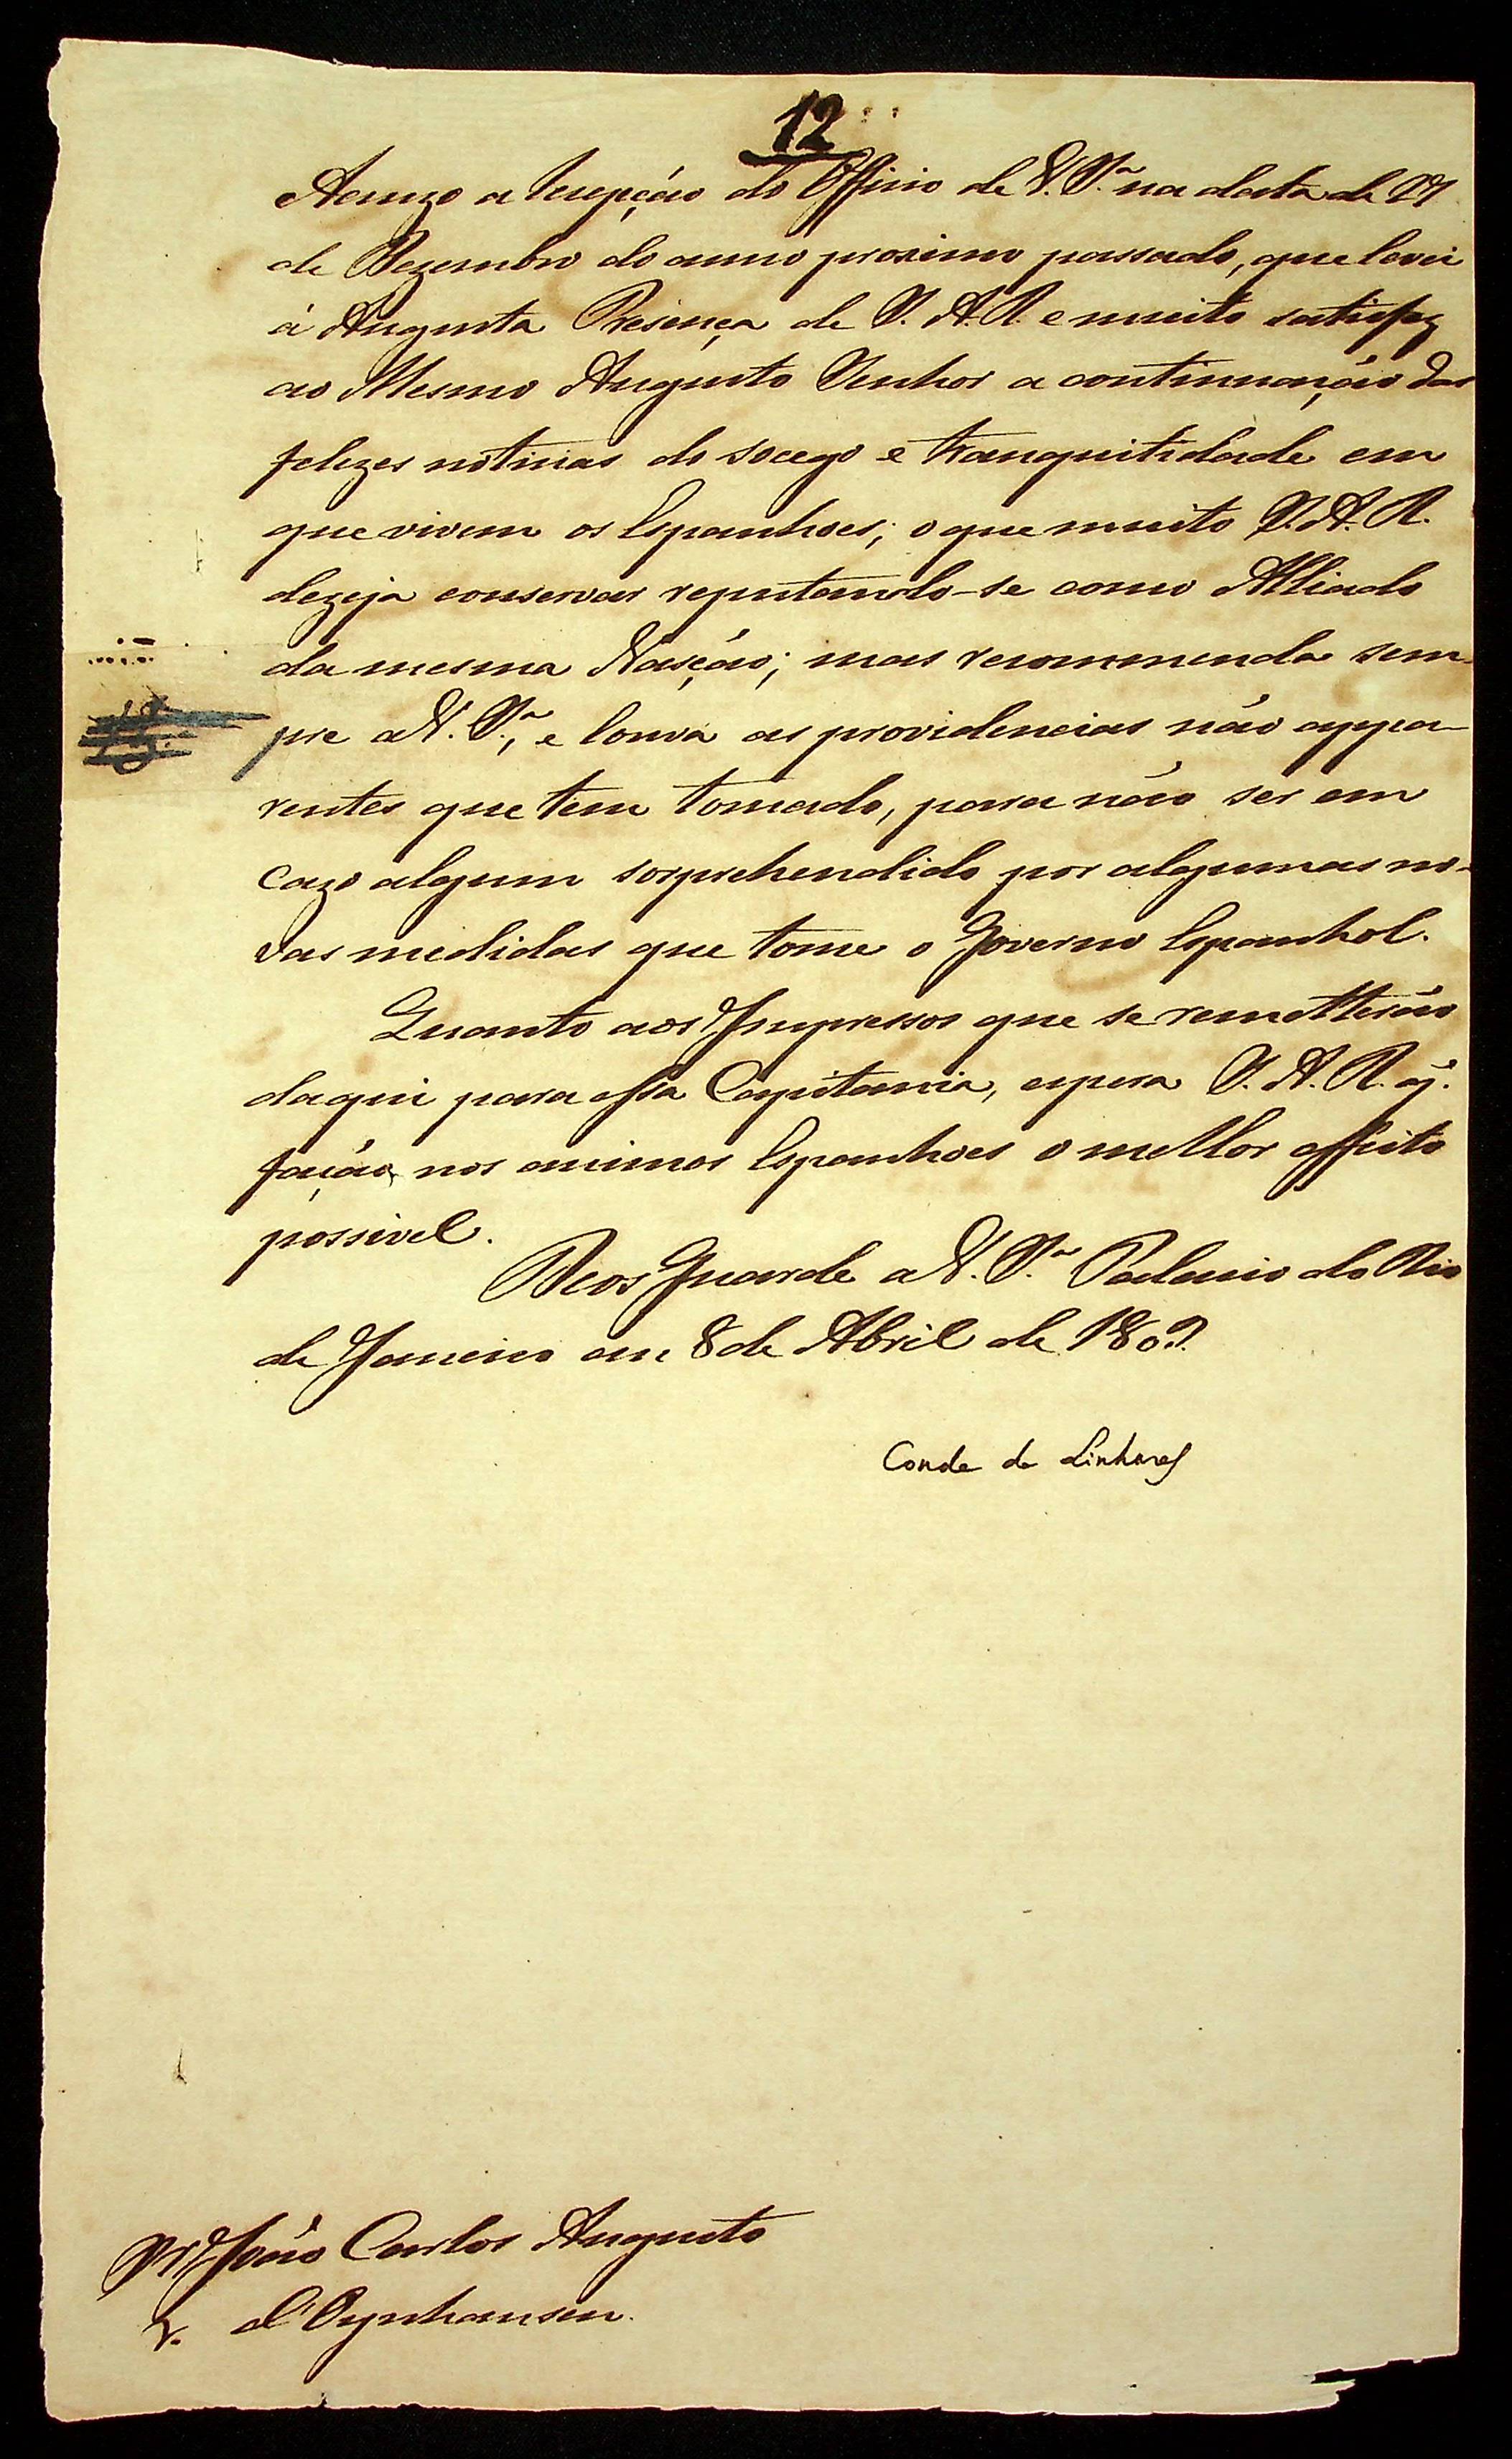 12
Acuzo a recepção do Officio de V. S.ª na data de 27
de Dezembro do anno proximo passado, que levei
á Augusta Presença de S. A. R. e muito satisfez
ao Mesmo Augusto Senhor a continuação das
felizes noticias do socego e tranquilidade em
que vivem os Espanhoes; o que muito S. A. R.
dezeja conservar reputando-se como Alliado
da mesma Nasção; mas recommenda sem-
pre a V. S.ª, e louva as providencias não appa-
rentes que tem tomado, para não ser em
cazo algum sorprehendido por algumas no-
vas medidas que tome o Governo Espanhol.
Quanto aos Impressos que se remetterão
daqui para essa Capitania, espera S. A. R. q̃.
fação nos animos Espanhoes o melhor effeito
possivel.
Deos Guarde a V. S.ª Palacio do Rio
de Janeiro em 8 de Abril de 1809.
Conde de Linhares
Sr. João Carlos Augusto
d'Oynhausen.